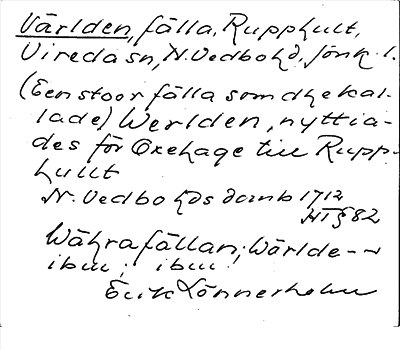 Världen, fälla, Rupphult,
Viredasn, N. Vedbo hd, Jönk. l.
(Een stoor fälla som dhe kal-
lade) Werlden, nyttia-
des för Oxehage till Rupp-
hullt
N. Vedbo hds domb 1712
HT § 82
Währafällan; Wärlde--
ibm; ibm.
Erik Lönnerholm